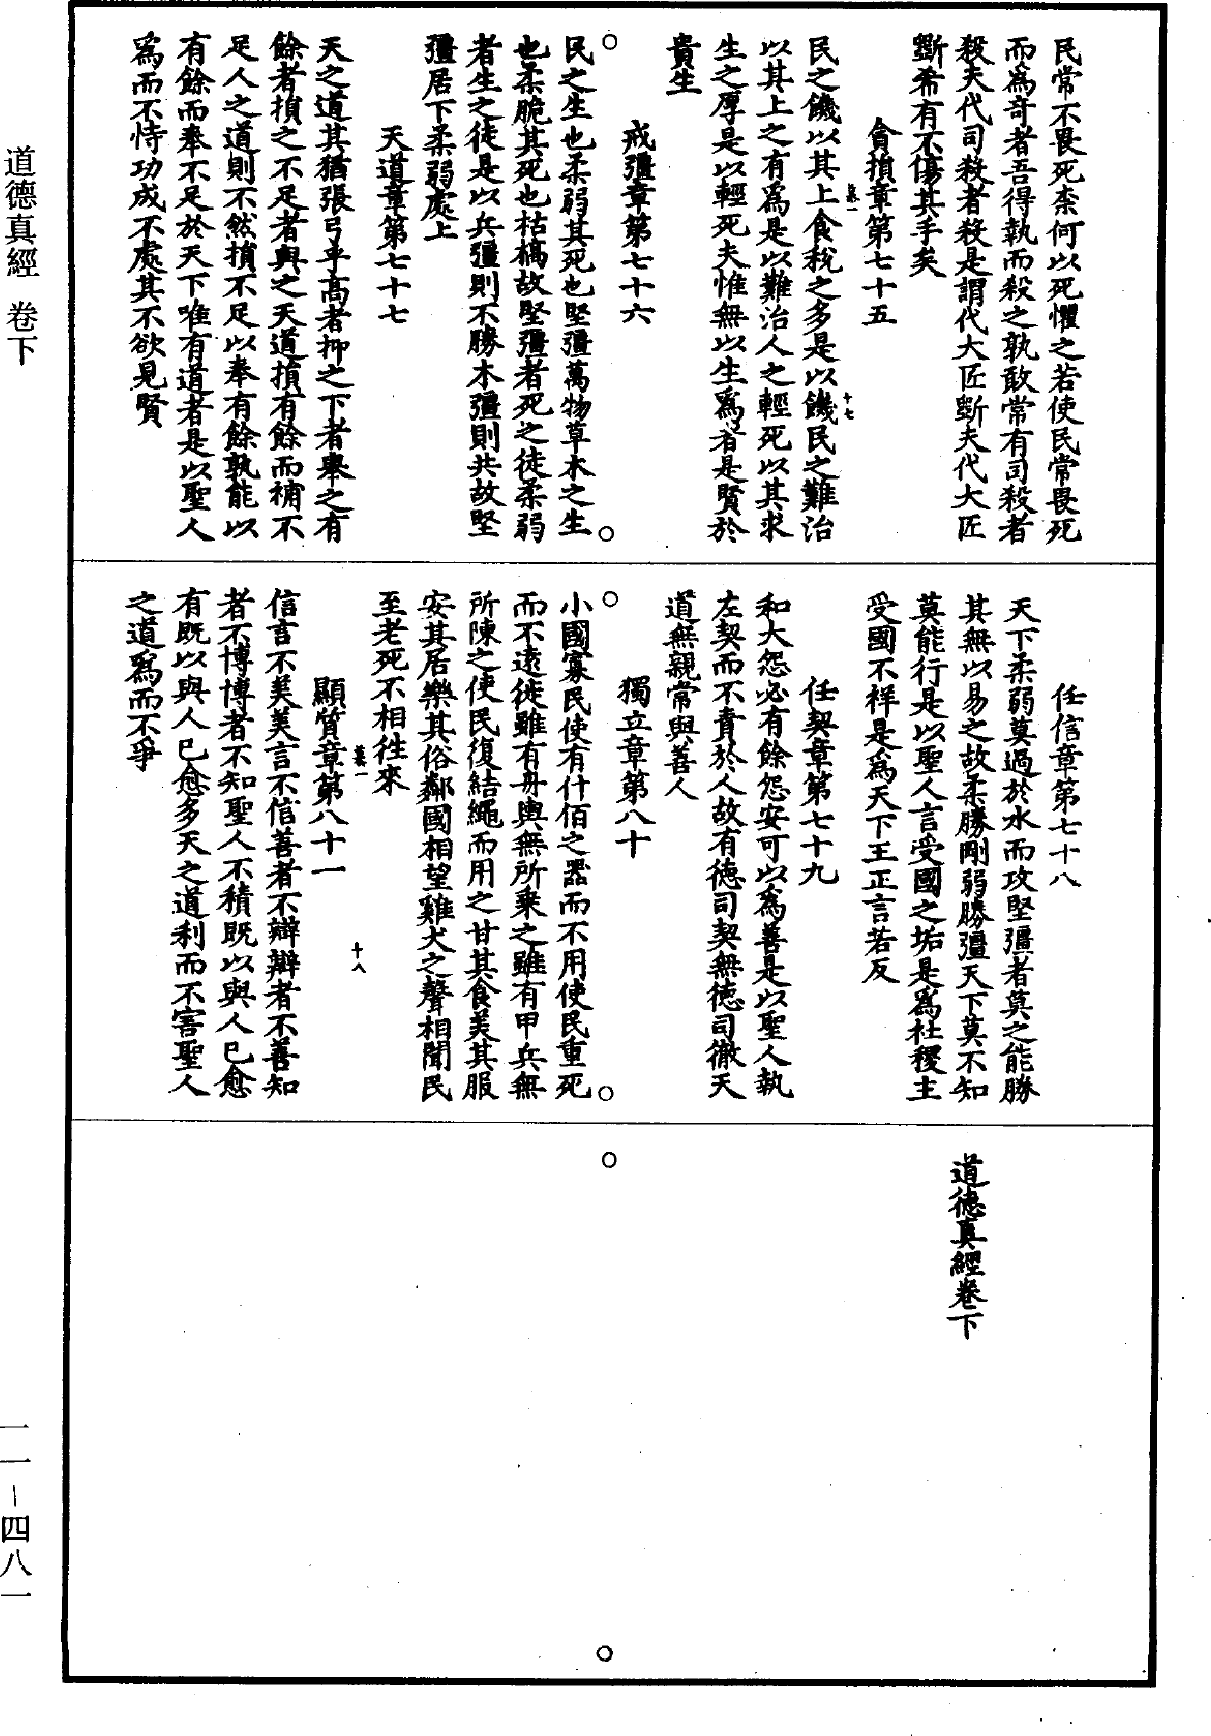 民常不畏死柰何以死懼之若使民常畏死
而爲奇者吾得執而殺之孰敢常有司殺者
殺夫代司殺者殺是謂代大匠斲夫代大匠
斲希有不傷其手矣
貪損章第七十五
民之饑以其上食稅之多是以饑民之難治
以其上之有爲是以難治人之輕死以其求
生之厚是以輕死夫惟無以生爲者是賢於
貴生
戒彊章第七十六
民之生也柔弱其死也堅彊萬物草木之生
也柔脆其死也枯槁故堅彊者死之徒柔弱
者生之徒是以兵彊則不勝木彊則共故堅
彊居下柔弱處上
天道章第七十七
天之道其猶張弓乎高者抑之下者舉之有
餘者損之不足者與之天道損有餘而補不
足人之道則不然損不足以奉有餘孰能以
有餘而奉不足於天下唯有道者是以聖人
爲而不恃功成不處其不欲見賢
任信章第七十八
天下柔弱莫過於水而攻堅彊者莫之能勝
其無以易之故柔勝剛弱勝彊天下莫不知
莫能行是以聖人言受國之垢是爲社稷主
受國不祥是爲天下王正言若反
任契章第七十九
和大怨必有餘怨安可以爲善是以聖人執
左契而不責於人故有德司契無德司徹天
道無親常與善人
獨立章第八十
小國寡民使有什佰之器而不用使民重死
而不遠徙雖有舟輿無所乗之雖有甲兵無
所陳之使民復結繩而用之甘其食美其服
安其居樂其俗鄰國相望雞犬之聲相聞民
至老死不相往來
顯質章第八十一
信言不美美言不信善者不辯辯者不善知
者不博博者不知聖人不積既以與人己愈
有既以與人己愈多天之道利而不害聖人
之道爲而不爭
道德真經卷下
十七
十八
道德真經 卷下
一一-四八一